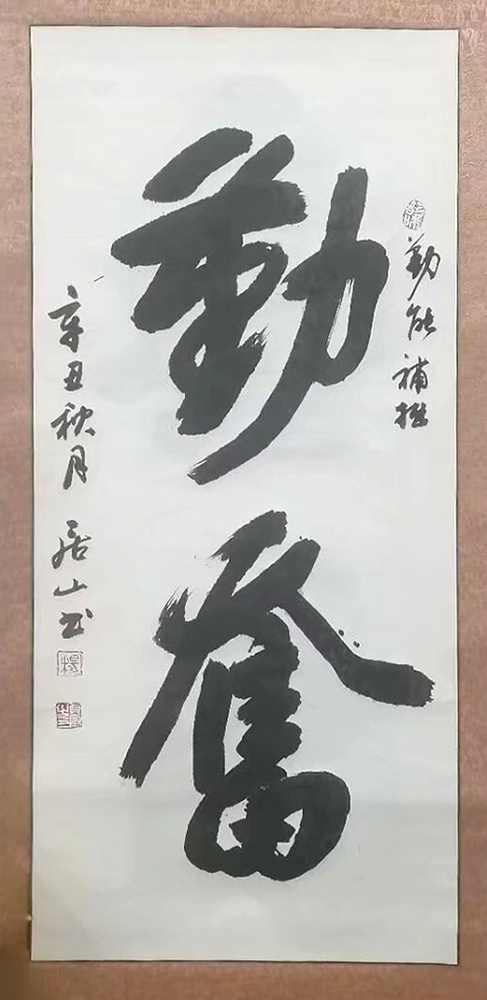 勤能補拙
勤奮
辛丑秋月 居山书